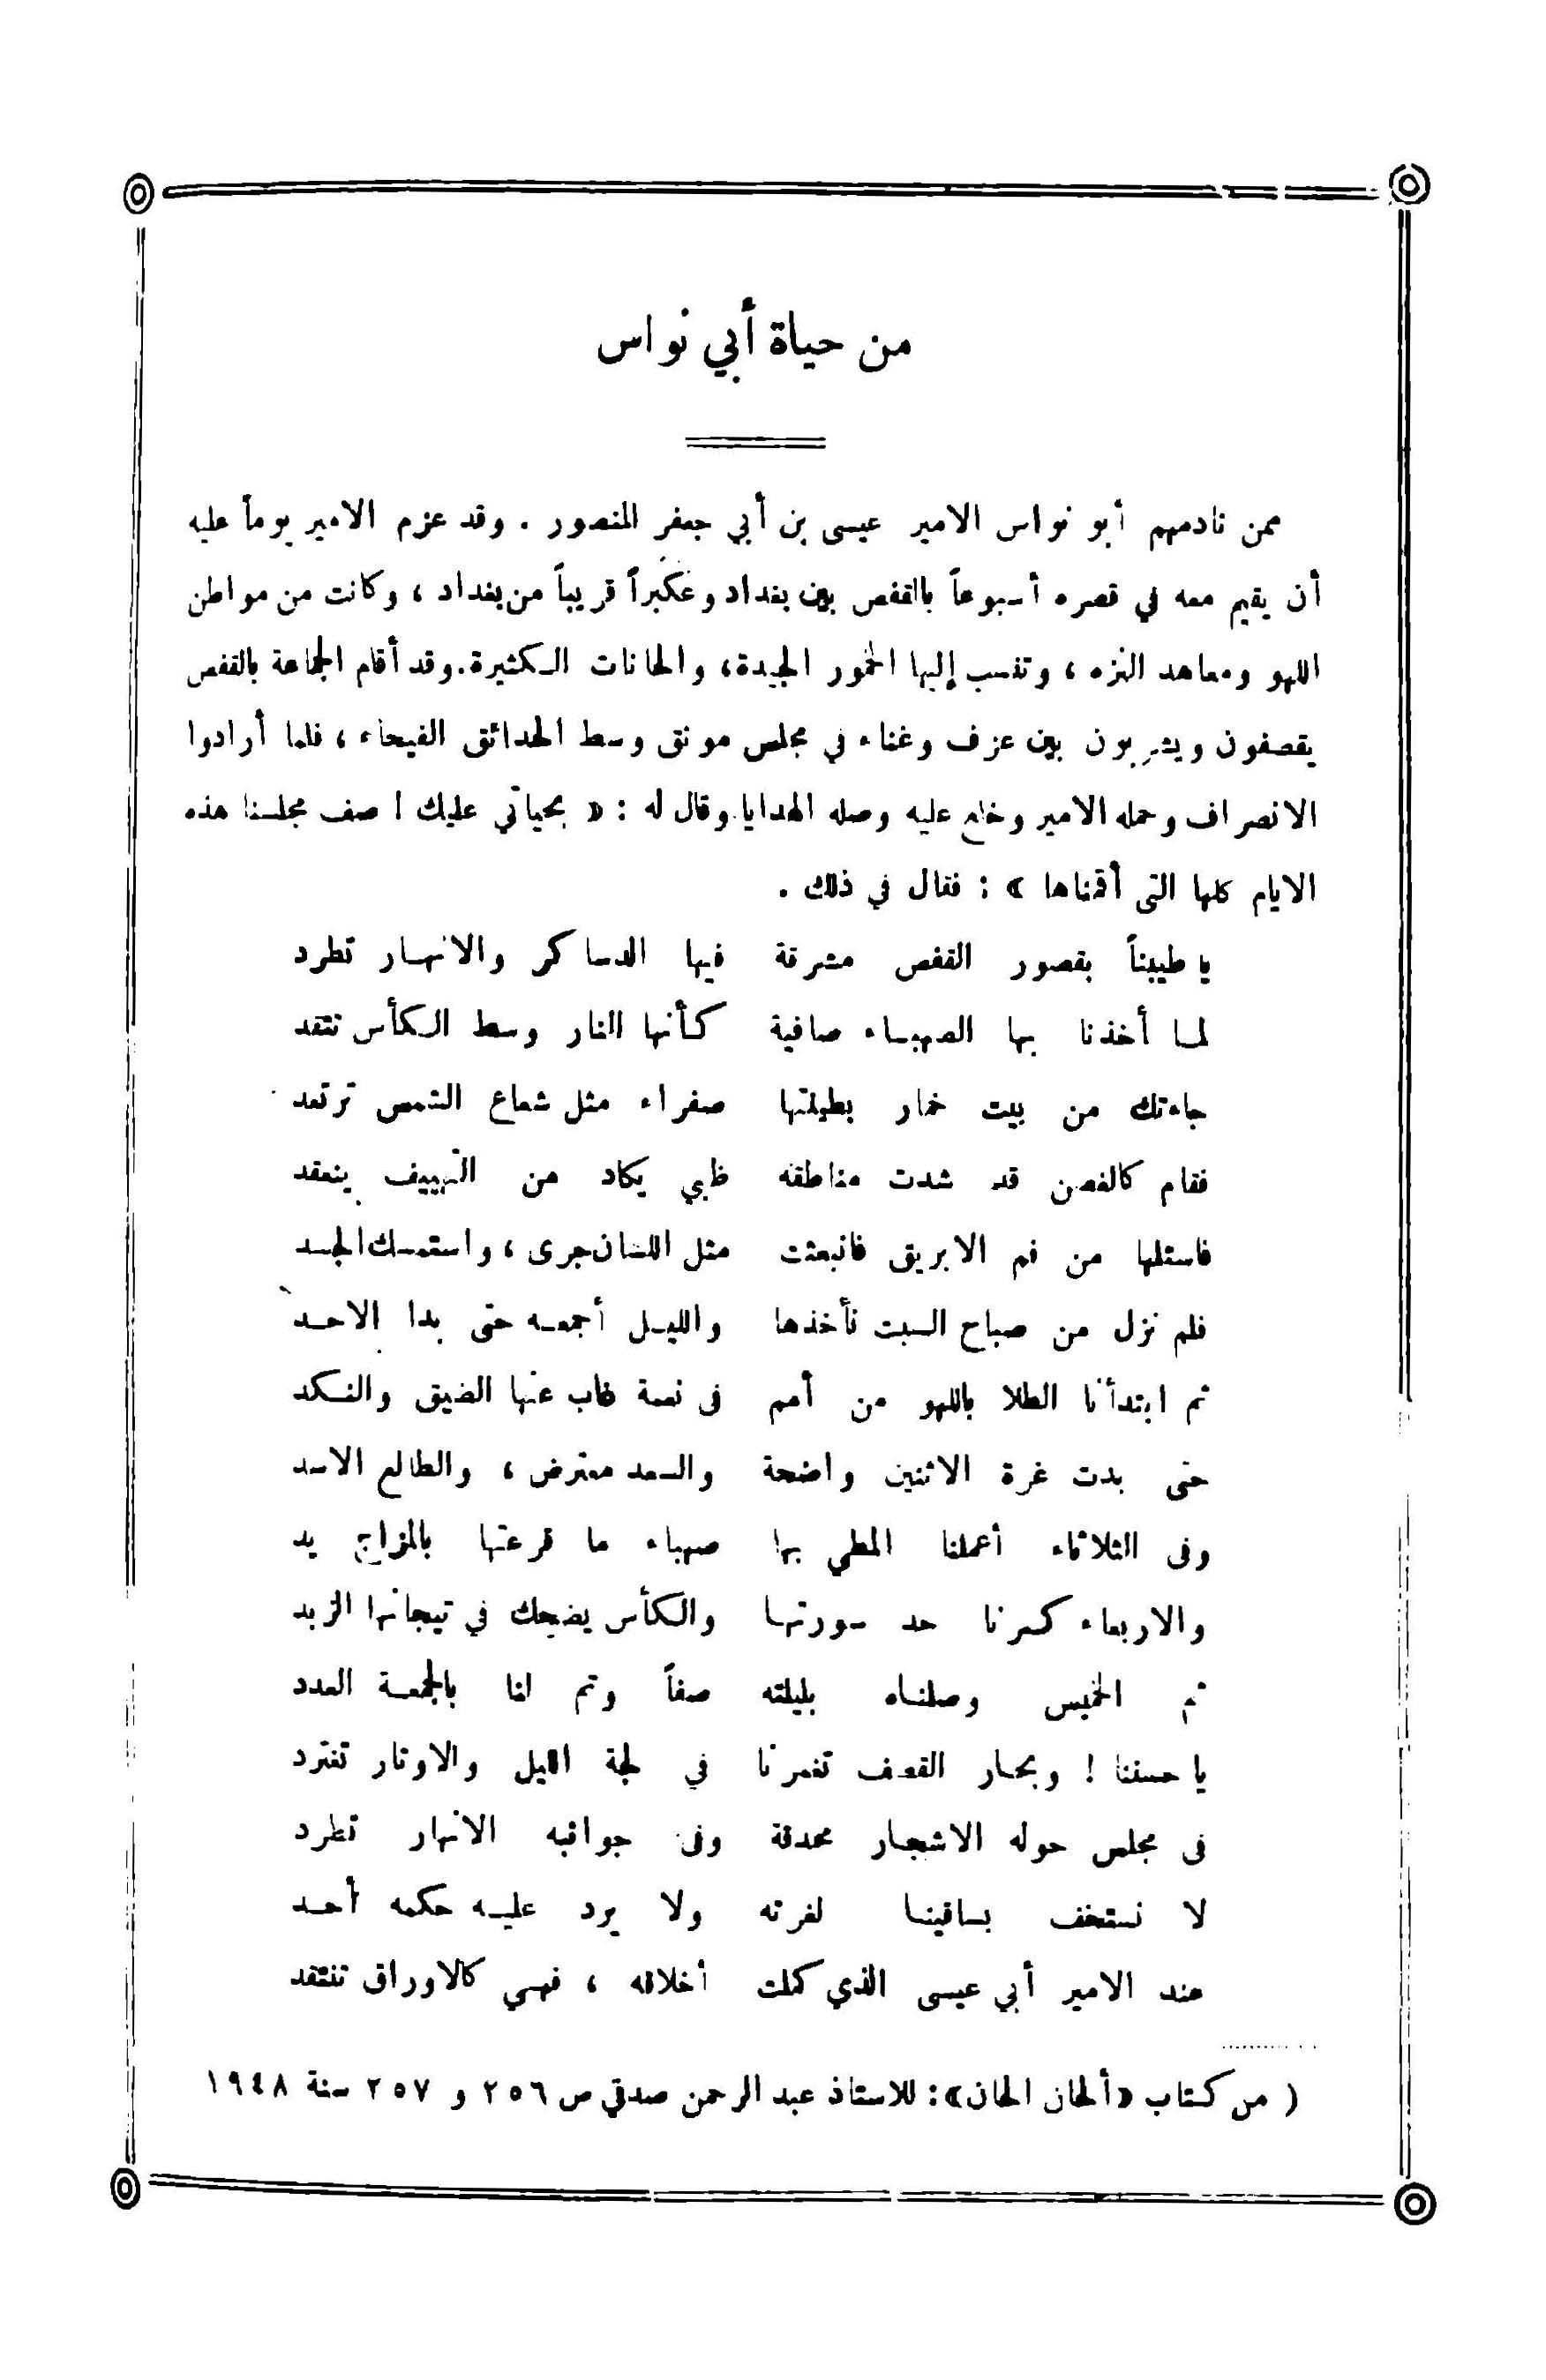 من حياة أبي نواس
ممن نادمهم أبو نواس الامير عيسى بن أبي جعفر المنصور . وقد عزم الامير يوماً عليه
أن يقيم معه في قصره أسبوعاً بالقفص بين بغداد وعكبراً قريباً من بغداد ، وكانت من مواطن
اللهو ومعاهد النزه ، وتنسب إليها الخمور الجيدة ، والحانات الكثيرة . وقد أقام الجماعة بالقفص
يقصفون ويشربون بين عزف وغناء في مجلس مونق وسط الحدائق الفيحاء ، فلما أرادوا
الانصراف وحمله الامير وخلع عليه وصله الهدايا وقال له : « بحياتي عليك ! صف مجلسنا هذه
الايام كلها التى أقمناها » : فقال في ذلك .
يا طيبناً بقصور القفص مشرقة فيها الدساكر والانهار تطرد
لما أخذنا بها الصهباء صافية كأنها النار وسط الكأس تتقد
جاءتك من بيت خمار بطينتها صفراء مثل شعاع الشمس ترتعد
فقام كالغصن قد شدت مناطقه ظبي يكاد من التهييف ينعقد
فاستلها من فم الابريق فانبعثت مثل اللسان جرى ، واستمسك الجسد
فلم نزل من صباح السبت نأخذها والليل أجمعه حتى بدا الاحد
ثم ابتدأنا الطلا باللهو من أمم فى نعمة غاب عنها الضيق والنكد
حتى بدت غرة الاثنين واضحة والسعد معترض ، والطالع الاسد
وفى الثلاثاء أعملنا المطي بها صهباء ما قرعتها بالمزاج يد
والاربعاء كسرنا حد سورتها والكأس يضحك في تيجانها الزبد
ثم الخميس وصلناه بليلته صفاً وتم لنا بالجمعة العدد
يا حسننا ! وبحار القصف تغمرنا في لجة الليل والاوتار تغترد
فى مجلس حوله الاشجار محدقة وفى جوانبه الانهار تطرد
لا نستخف بساقينا لغرته ولا يرد عليه حكمه أحد
عند الامير أبي عيسى الذي كملت أخلاقه ، فهي كالاوراق تنتقد
( من كتاب « ألحان الحان » : للاستاذ عبد الرحمن صدقي ص ٢٥٦ و ٢٥٧ سنة ١٩٤٨